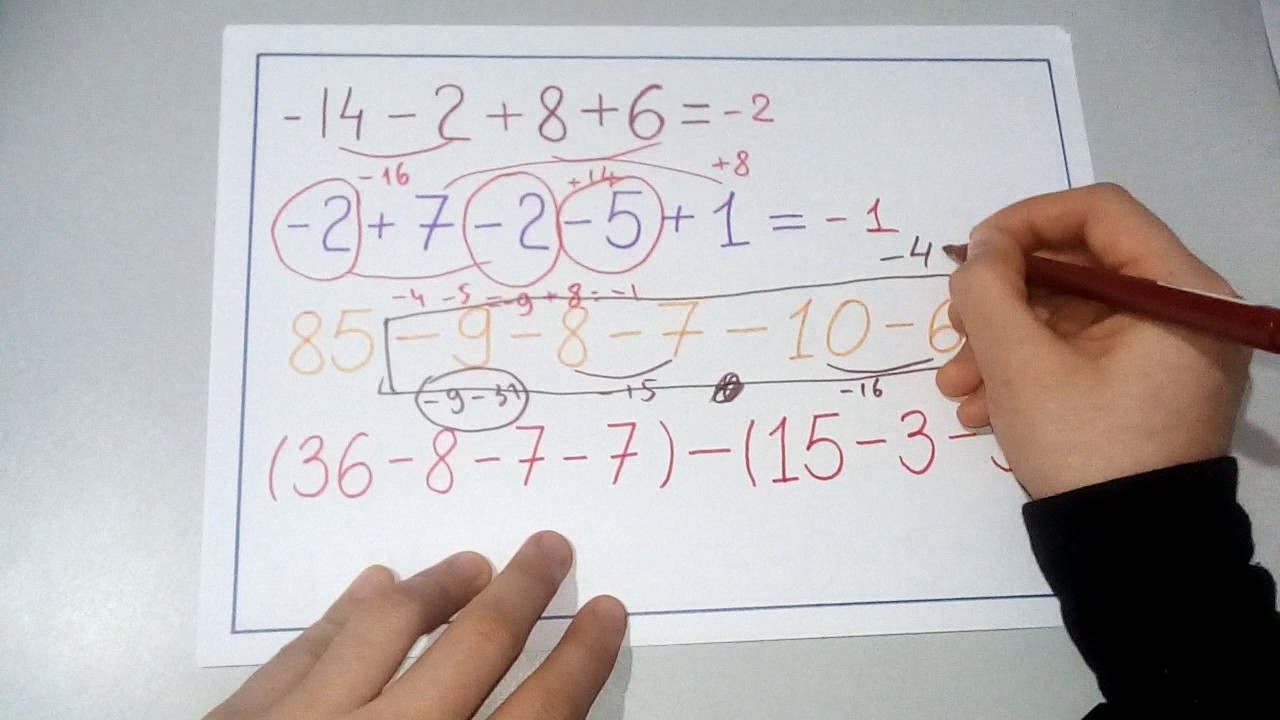 -14-2+8+6=-2
-16 +14 +8
-2+7-2-5+1=-1
-4
-4 -5 =-9 +8=-1
85-9-8-7-10-6
-9-31 +5 -16
(36-8-7-7)-(15-3-